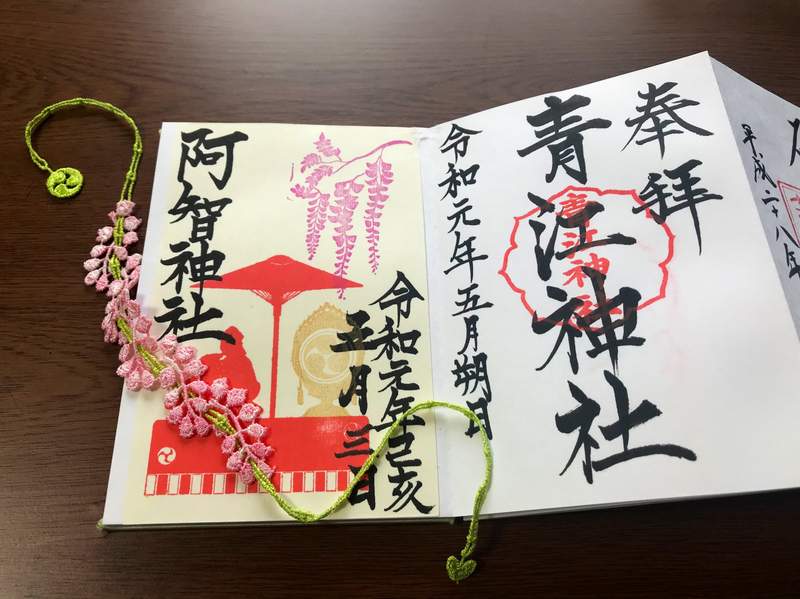 平成二十八年
奉拝
青江神社
令和元年五月朔日
令和元年己亥
五月三日
阿智神社